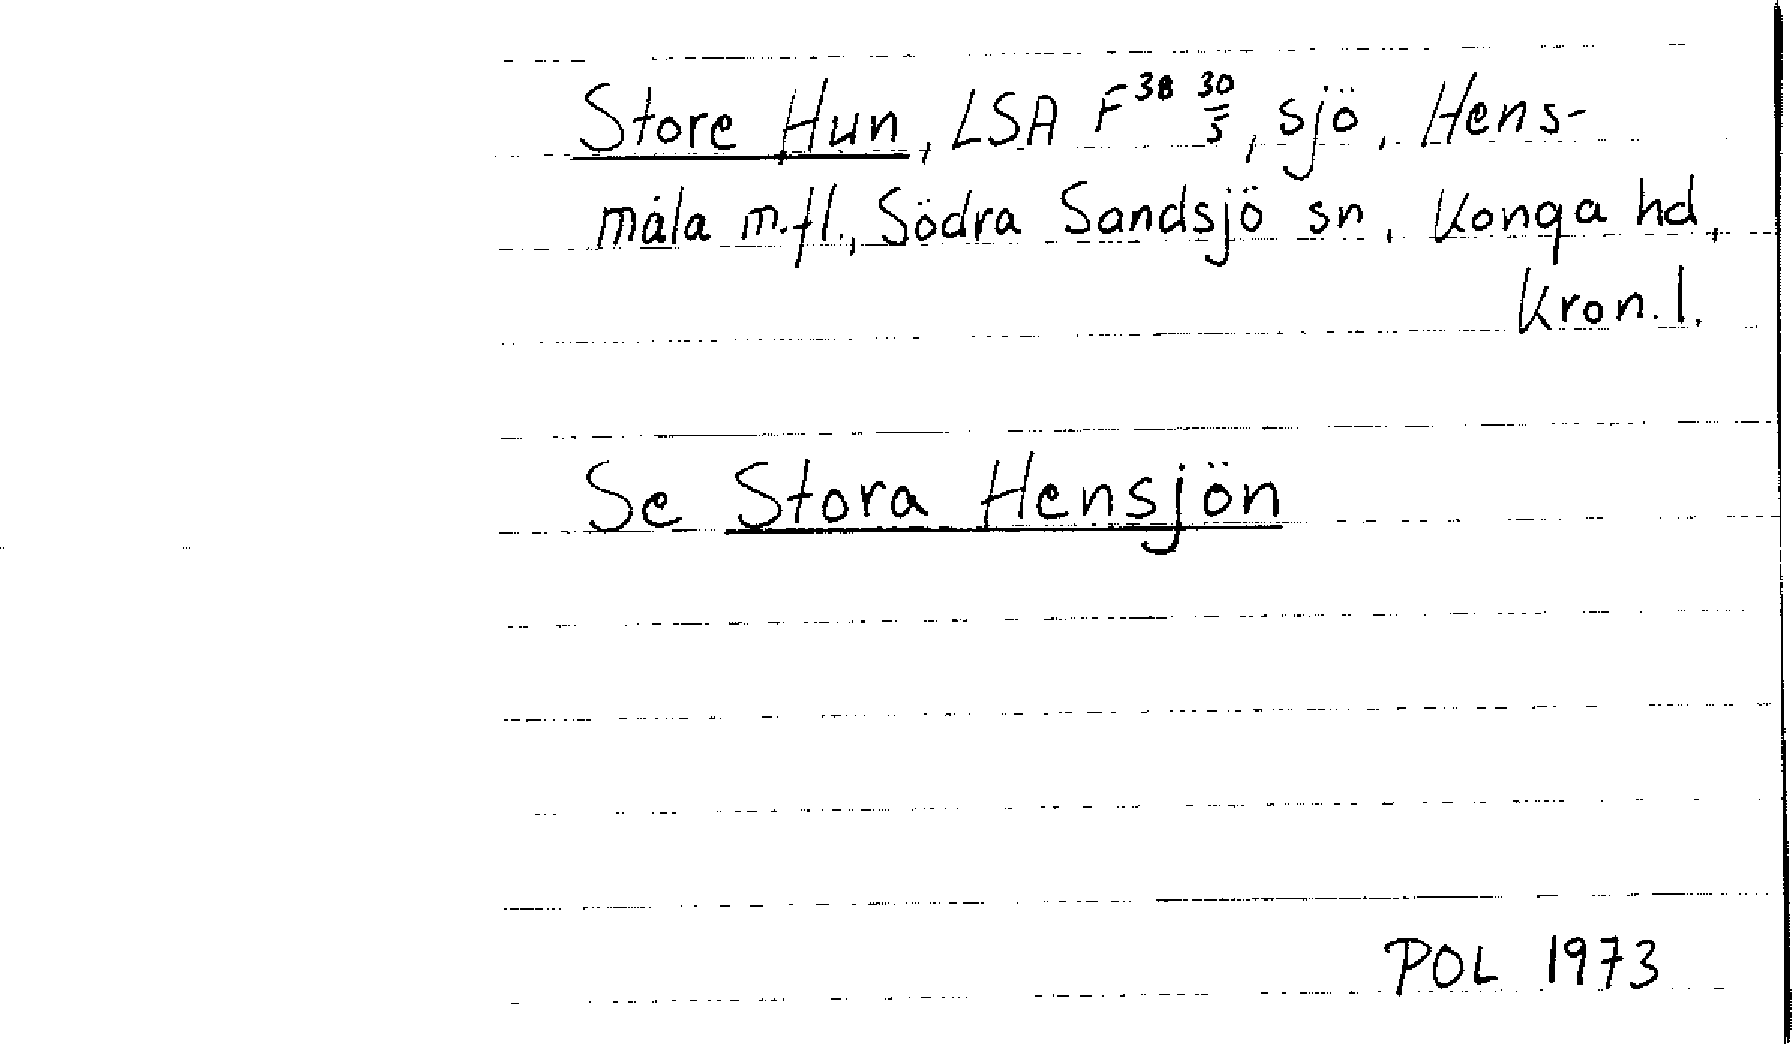 Store Hun, LSA F³⁸ 30/5, sjö, Hens-
måla m.fl., Södra Sandsjö sn, Konga hd,
Kron.l.
Se Stora Hensjön
POL 1973